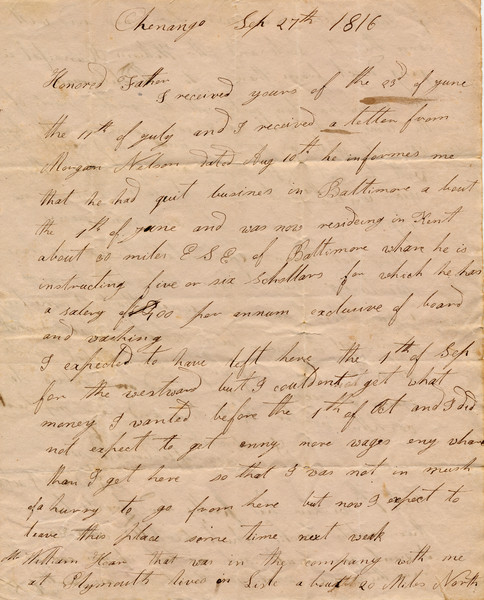 Chenango Sep 27th 1816
Honored Father
I received yours of the 23d of june
the 11th of july and I received a letter from
Morgan Nelson dated Aug 10th he informes me
that he had quit busines in Baltimore a bout
the 1th of june and was now resideing in Kent
about 30 miles E S E of Baltimore whare he is
instructing five or six Schollars for which he has
a salery of 400 per annum exclusive of board
and washing
I expected to have left here the 1th of Sep
for the westward but I couldent get what
money I wanted before the 1th of Oct and I did
not expect to get enny more wages eny whare
than I get here so that I was not in mush
of a hurry to go from here but now I expect to
leave this place some time next week
William that was in the company with me
at Plymouth lives in Lisle a bought 20 Miles North